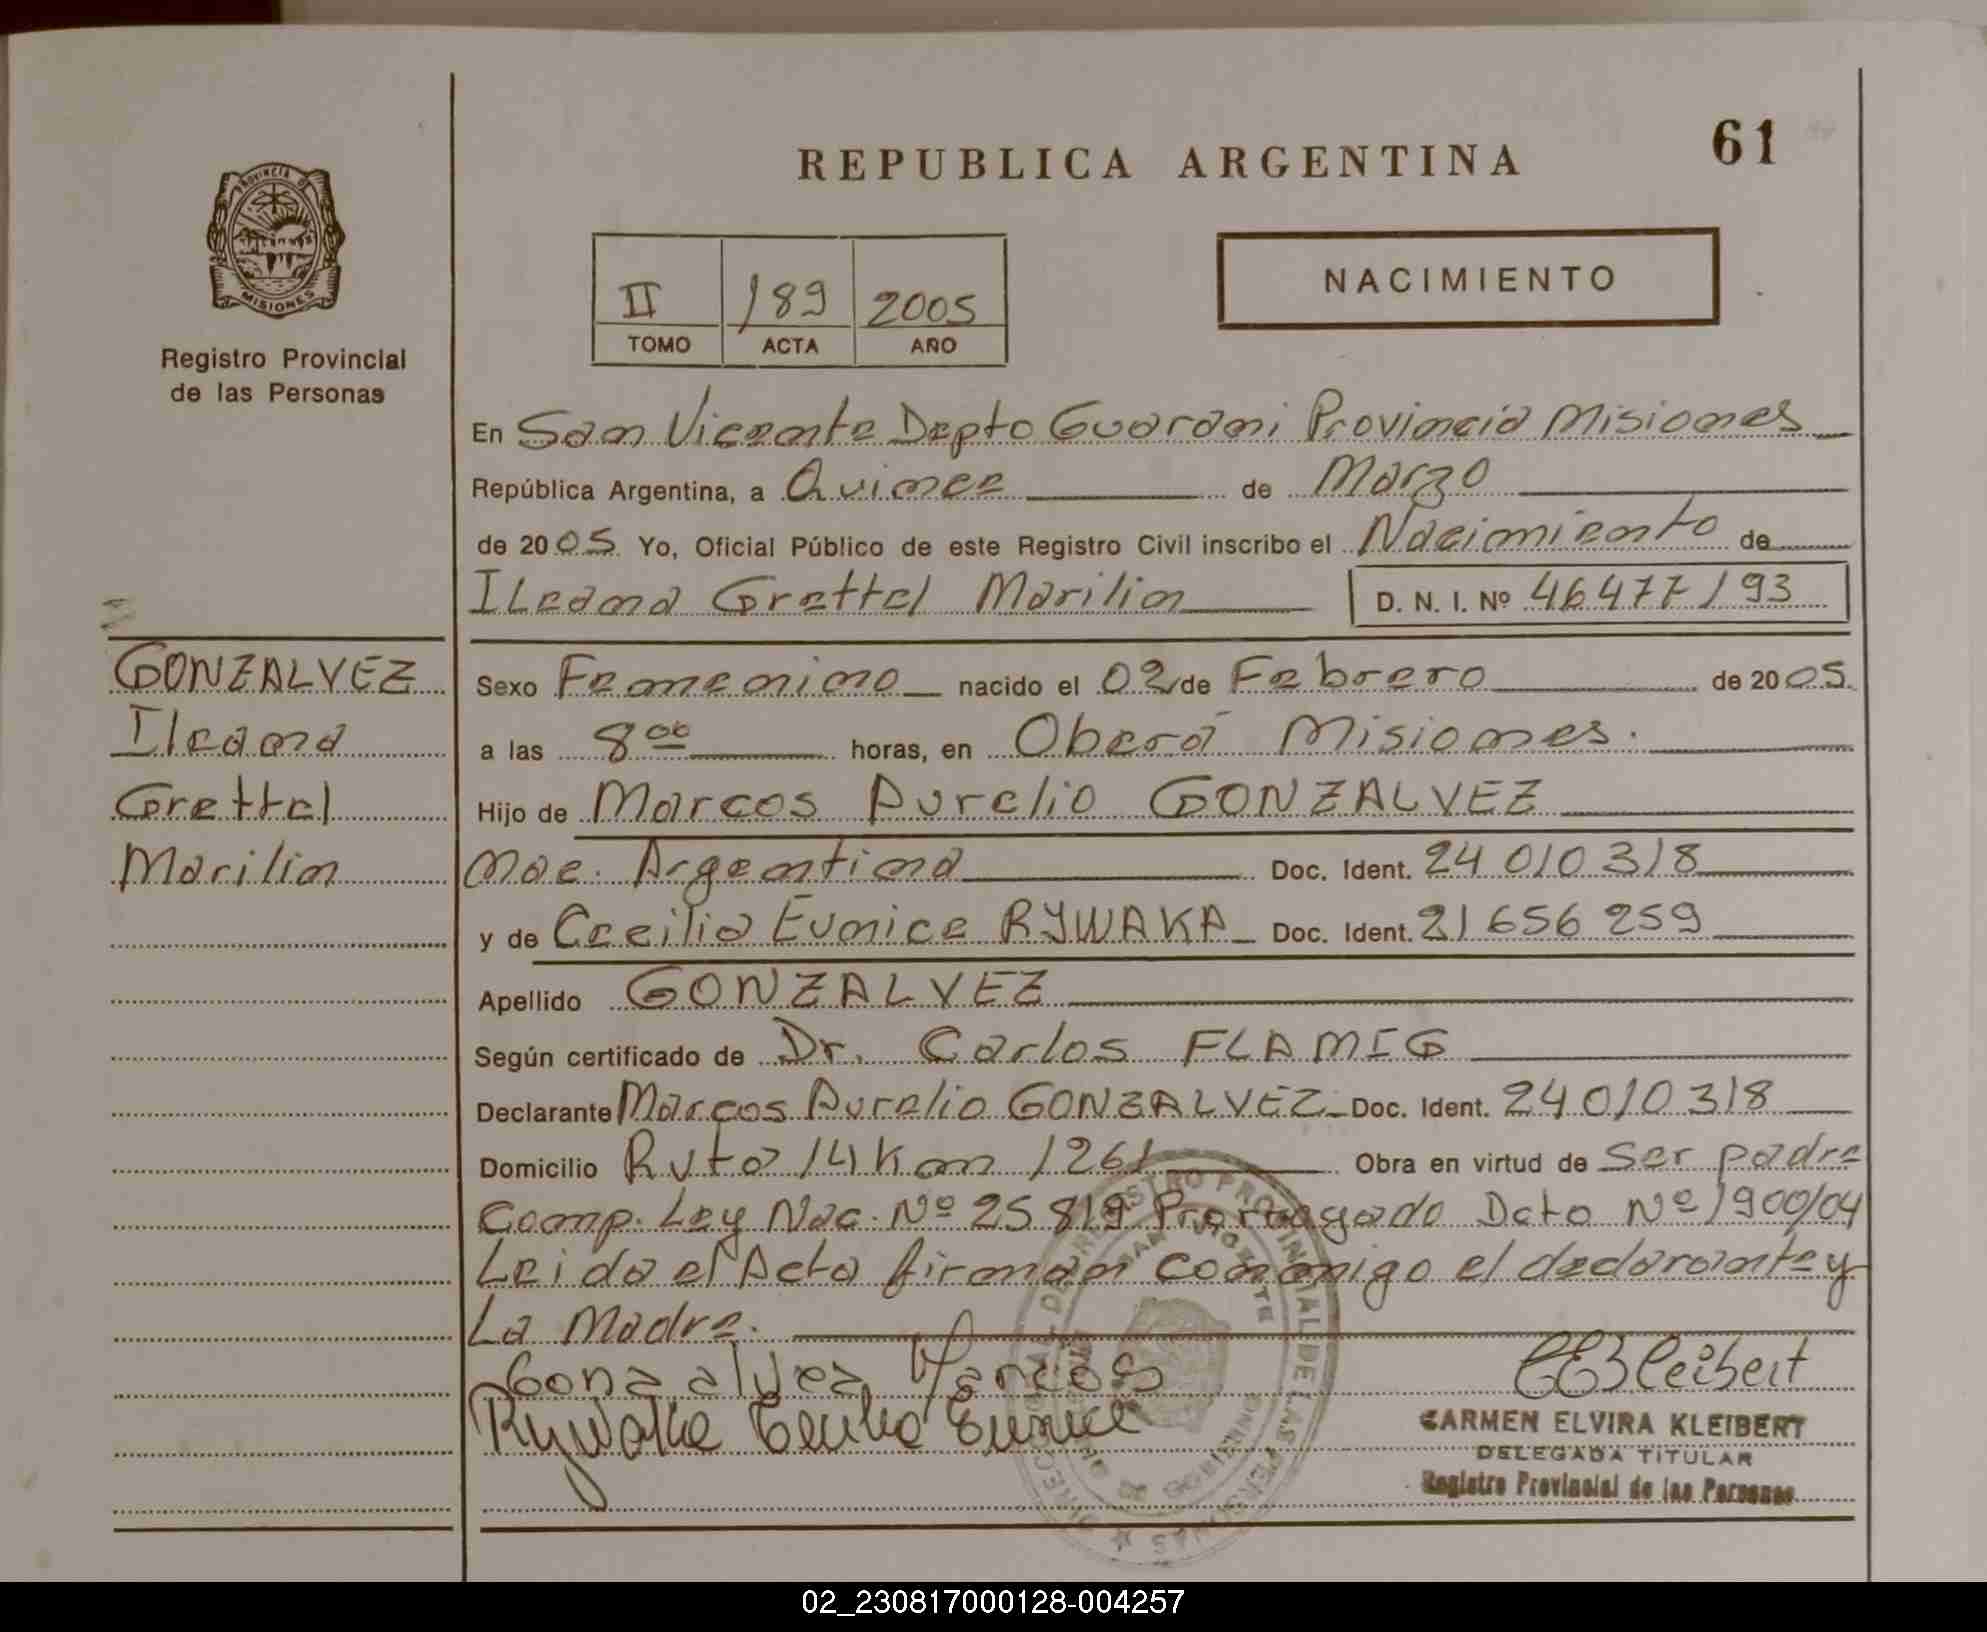 REPUBLICA ARGENTINA
61
PROVINCIA DE
MISIONES
Registro Provincial
de las Personas
II 189 2005
TOMO ACTA AÑO
NACIMIENTO
En San Vicente Depto Guarani Provincia Misiones
República Argentina, a Quince de Marzo
de 2005 Yo, Oficial Público de este Registro Civil inscribo el Nacimiento de
Ileana Grettel Marilin D. N. I. Nº 46477193
GONZALVEZ
Ileana
Grettel
Marilin
Sexo Femenino nacido el 02 de Febrero de 2005
a las 8 00 horas, en Oberá Misiones.
Hijo de Marcos Aurelio GONZALVEZ
Nac. Argentina Doc. Ident. 24 010 318
y de Cecilia Eunice RYWAKA Doc. Ident. 21 656 259
Apellido GONZALVEZ
Según certificado de Dr. Carlos FLAMIG
Declarante Marcos Aurelio GONZALVEZ Doc. Ident. 24 010 318
Domicilio Ruta 14 Km 1261 Obra en virtud de Ser padre
Comp. Ley Nac. Nº 25819 Prorrogado Dcto Nº 1900/04
Leida el Acta firman conmigo el declarante y
La Madre.
Gonzalvez Marcos
Rywaka Cecilia Eunice
CEKleibert
CARMEN ELVIRA KLEIBERT
DELEGADA TITULAR
Registro Provincial de las Personas
REGISTRO PROVINCIAL DE LAS PERSONAS
SAN VICENTE
MISIONES
02_230817000128-004257